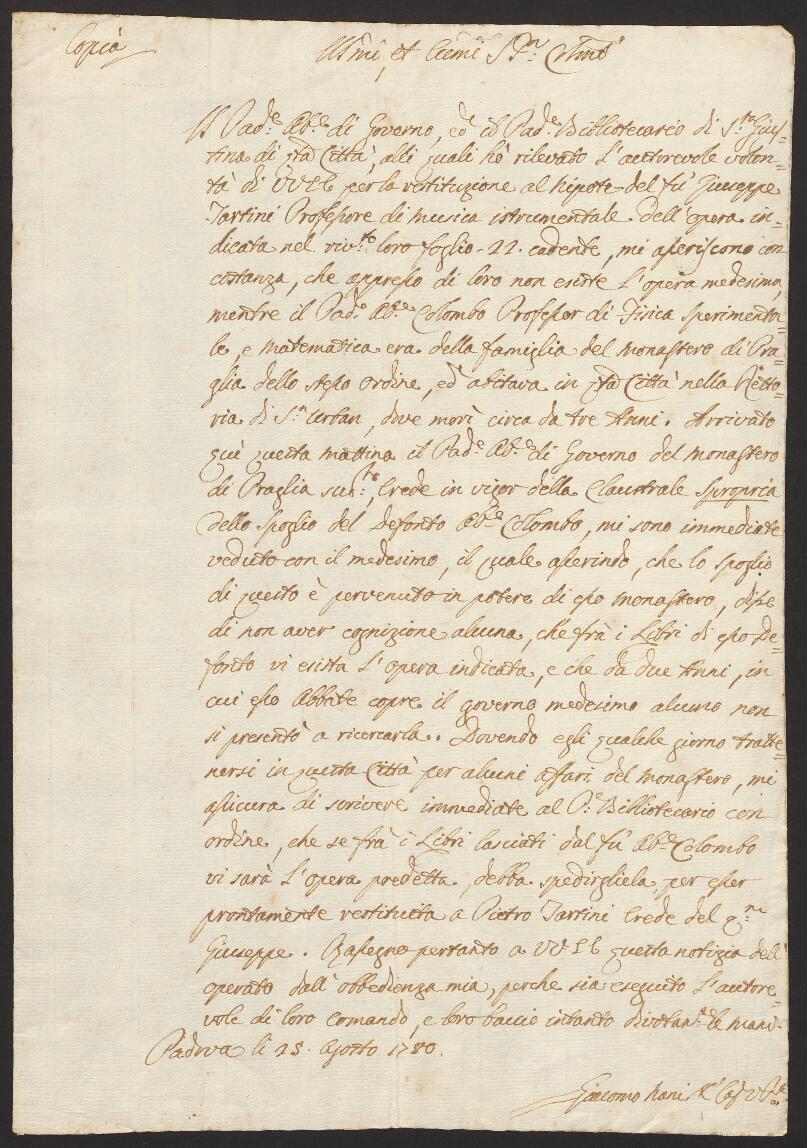 Copia
Ill:mi, et Ecc:mi S:ri Col:mi
Il Pad:e Ab:e di Governo, ed il Pad:e Bibliotecario di S:ta Gius=
tina di q:ta Città, alli quali hò rilevato l'autorevole volon=
tà di VVEE per la restituzione al Nipote del fù Giuseppe
Tartini Professore di musica istrumentale dell'opera in=
dicata nel riv:to loro foglio 22. cadente, mi asseriscono con
costanza, che appresso di loro non esiste l'opera medesima,
mentre il Pad:e Ab:e Colombo Professor di Fisica Sperimenta=
le, e matematica era della famiglia del monastero di Pra=
glia dello stesso ordine, ed abitava in q:ta Città nella Retto=
ria di S:n Urban, dove morì circa da tre Anni. Arrivato
quì questa mattina il Pad:e Ab:e di Governo del monastero
di Praglia sud:to, Erede in vigor della Claustrale Spropria
dello Spoglio del Defonto Ab:e Colombo, mi sono immediate
veduto con il medesimo, il quale asserindo, che lo spoglio
di questo è pervenuto in potere di esso monastero, disse
di non aver cognizione alcuna, che frà i Libri di esso De=
fonto vi esista l'opera indicata, e che da due Anni, in
cui esso Abbate copre il governo medesimo alcuno non
si presentò a ricercarla. Dovendo egli qualche giorno tratte=
nersi in questa Città per alcuni affari del monastero, mi
assicura di scrivere immediate al P:e Bibliotecario con
ordine, che se frà i Libri lasciati dal fù Ab:e Colombo
vi sarà l'opera predetta, debba spedirgliela per esser
prontamente restituita a Pietro Tartini Erede del q:m
Giuseppe. Rassegno pertanto a VVEE questa notizia dell'
operato dall'obbedienza mia, perche sia eseguito l'autore=
vole di loro comando, e loro baccio intanto divotam:te le mani.
Padova li 25. Agosto 1780.
Giacomo Nani